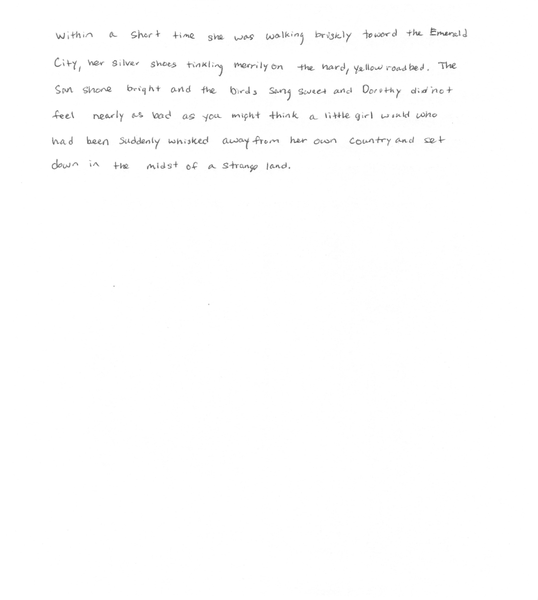 Within a short time she was walking briskly toward the Emerald
City, her silver shoes tinkling merrily on the hard, yellow roadbed. The
Sun shone bright and the birds sang sweet and Dorothy did not
feel nearly as bad as you might think a little girl would who
had been suddenly whisked away from her own country and set
down in the midst of a strange land.